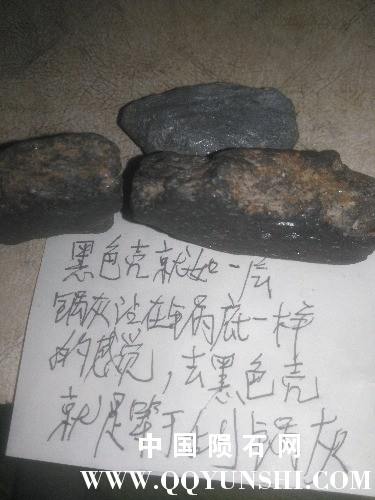 黑色壳就如一层
锅灰沾在锅底一样
的感觉，去黑色壳
就是等于刮锅灰
中国陨石网
WWW.QQYUNSHI.COM